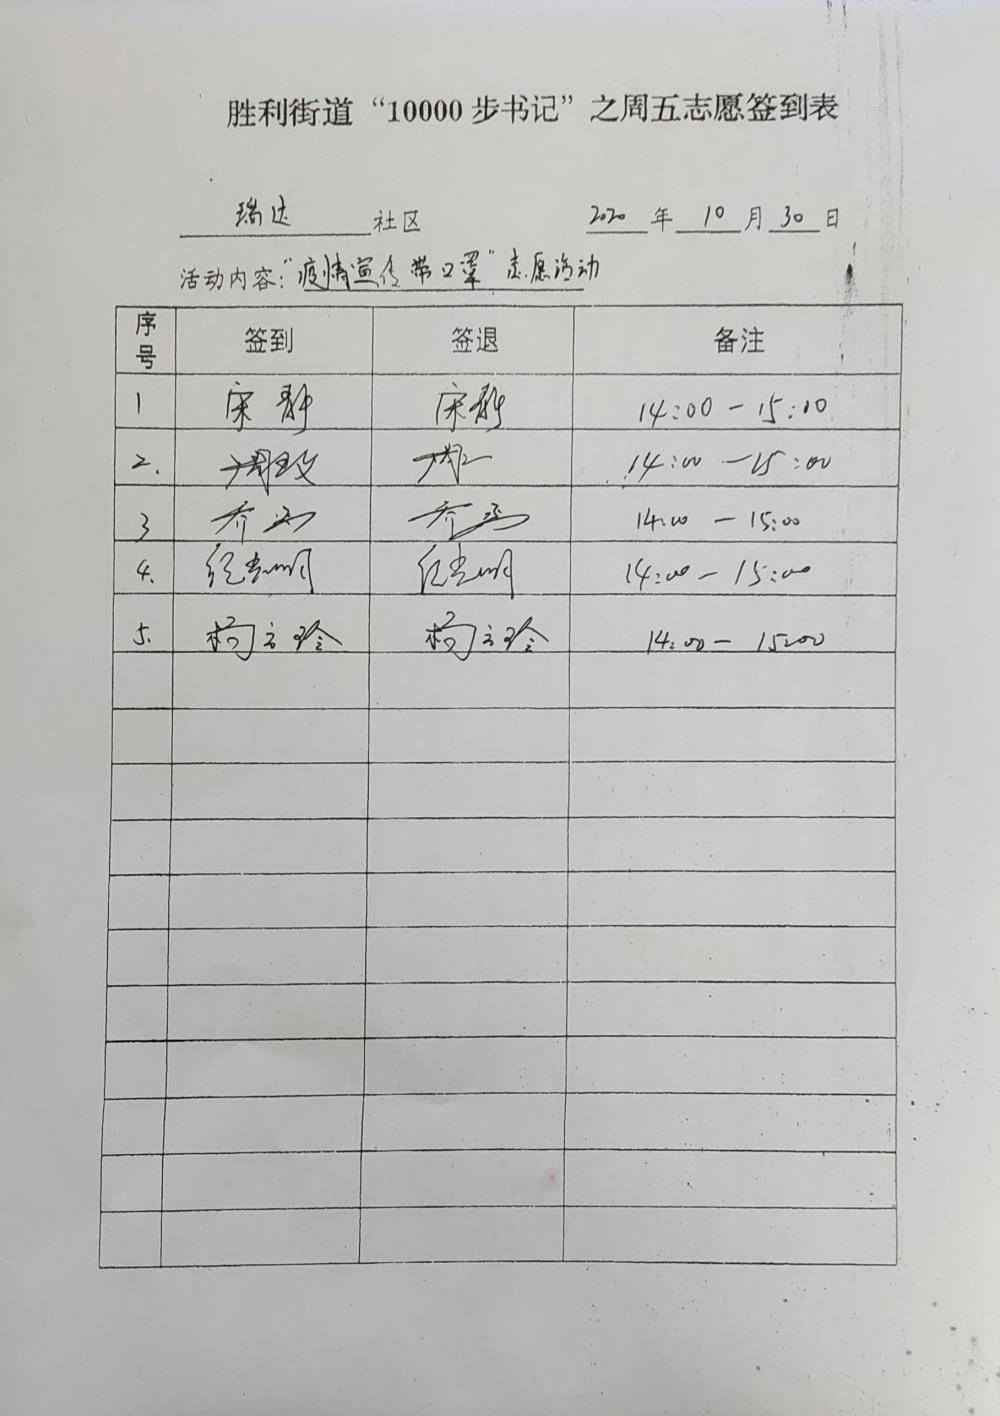 胜利街道“10000步书记”之周五志愿签到表
瑞达社区 2020年10月30日
活动内容:“疫情宣传带口罩”志愿活动
序号 签到 签退 备注
1 宋静 宋静 14:00-15:00
2. 周 周 14:00-15:00
3 乔 乔 14:00-15:00
4. 14:00-15:00
5. 杨玉玲 杨玉玲 14:00-15:00